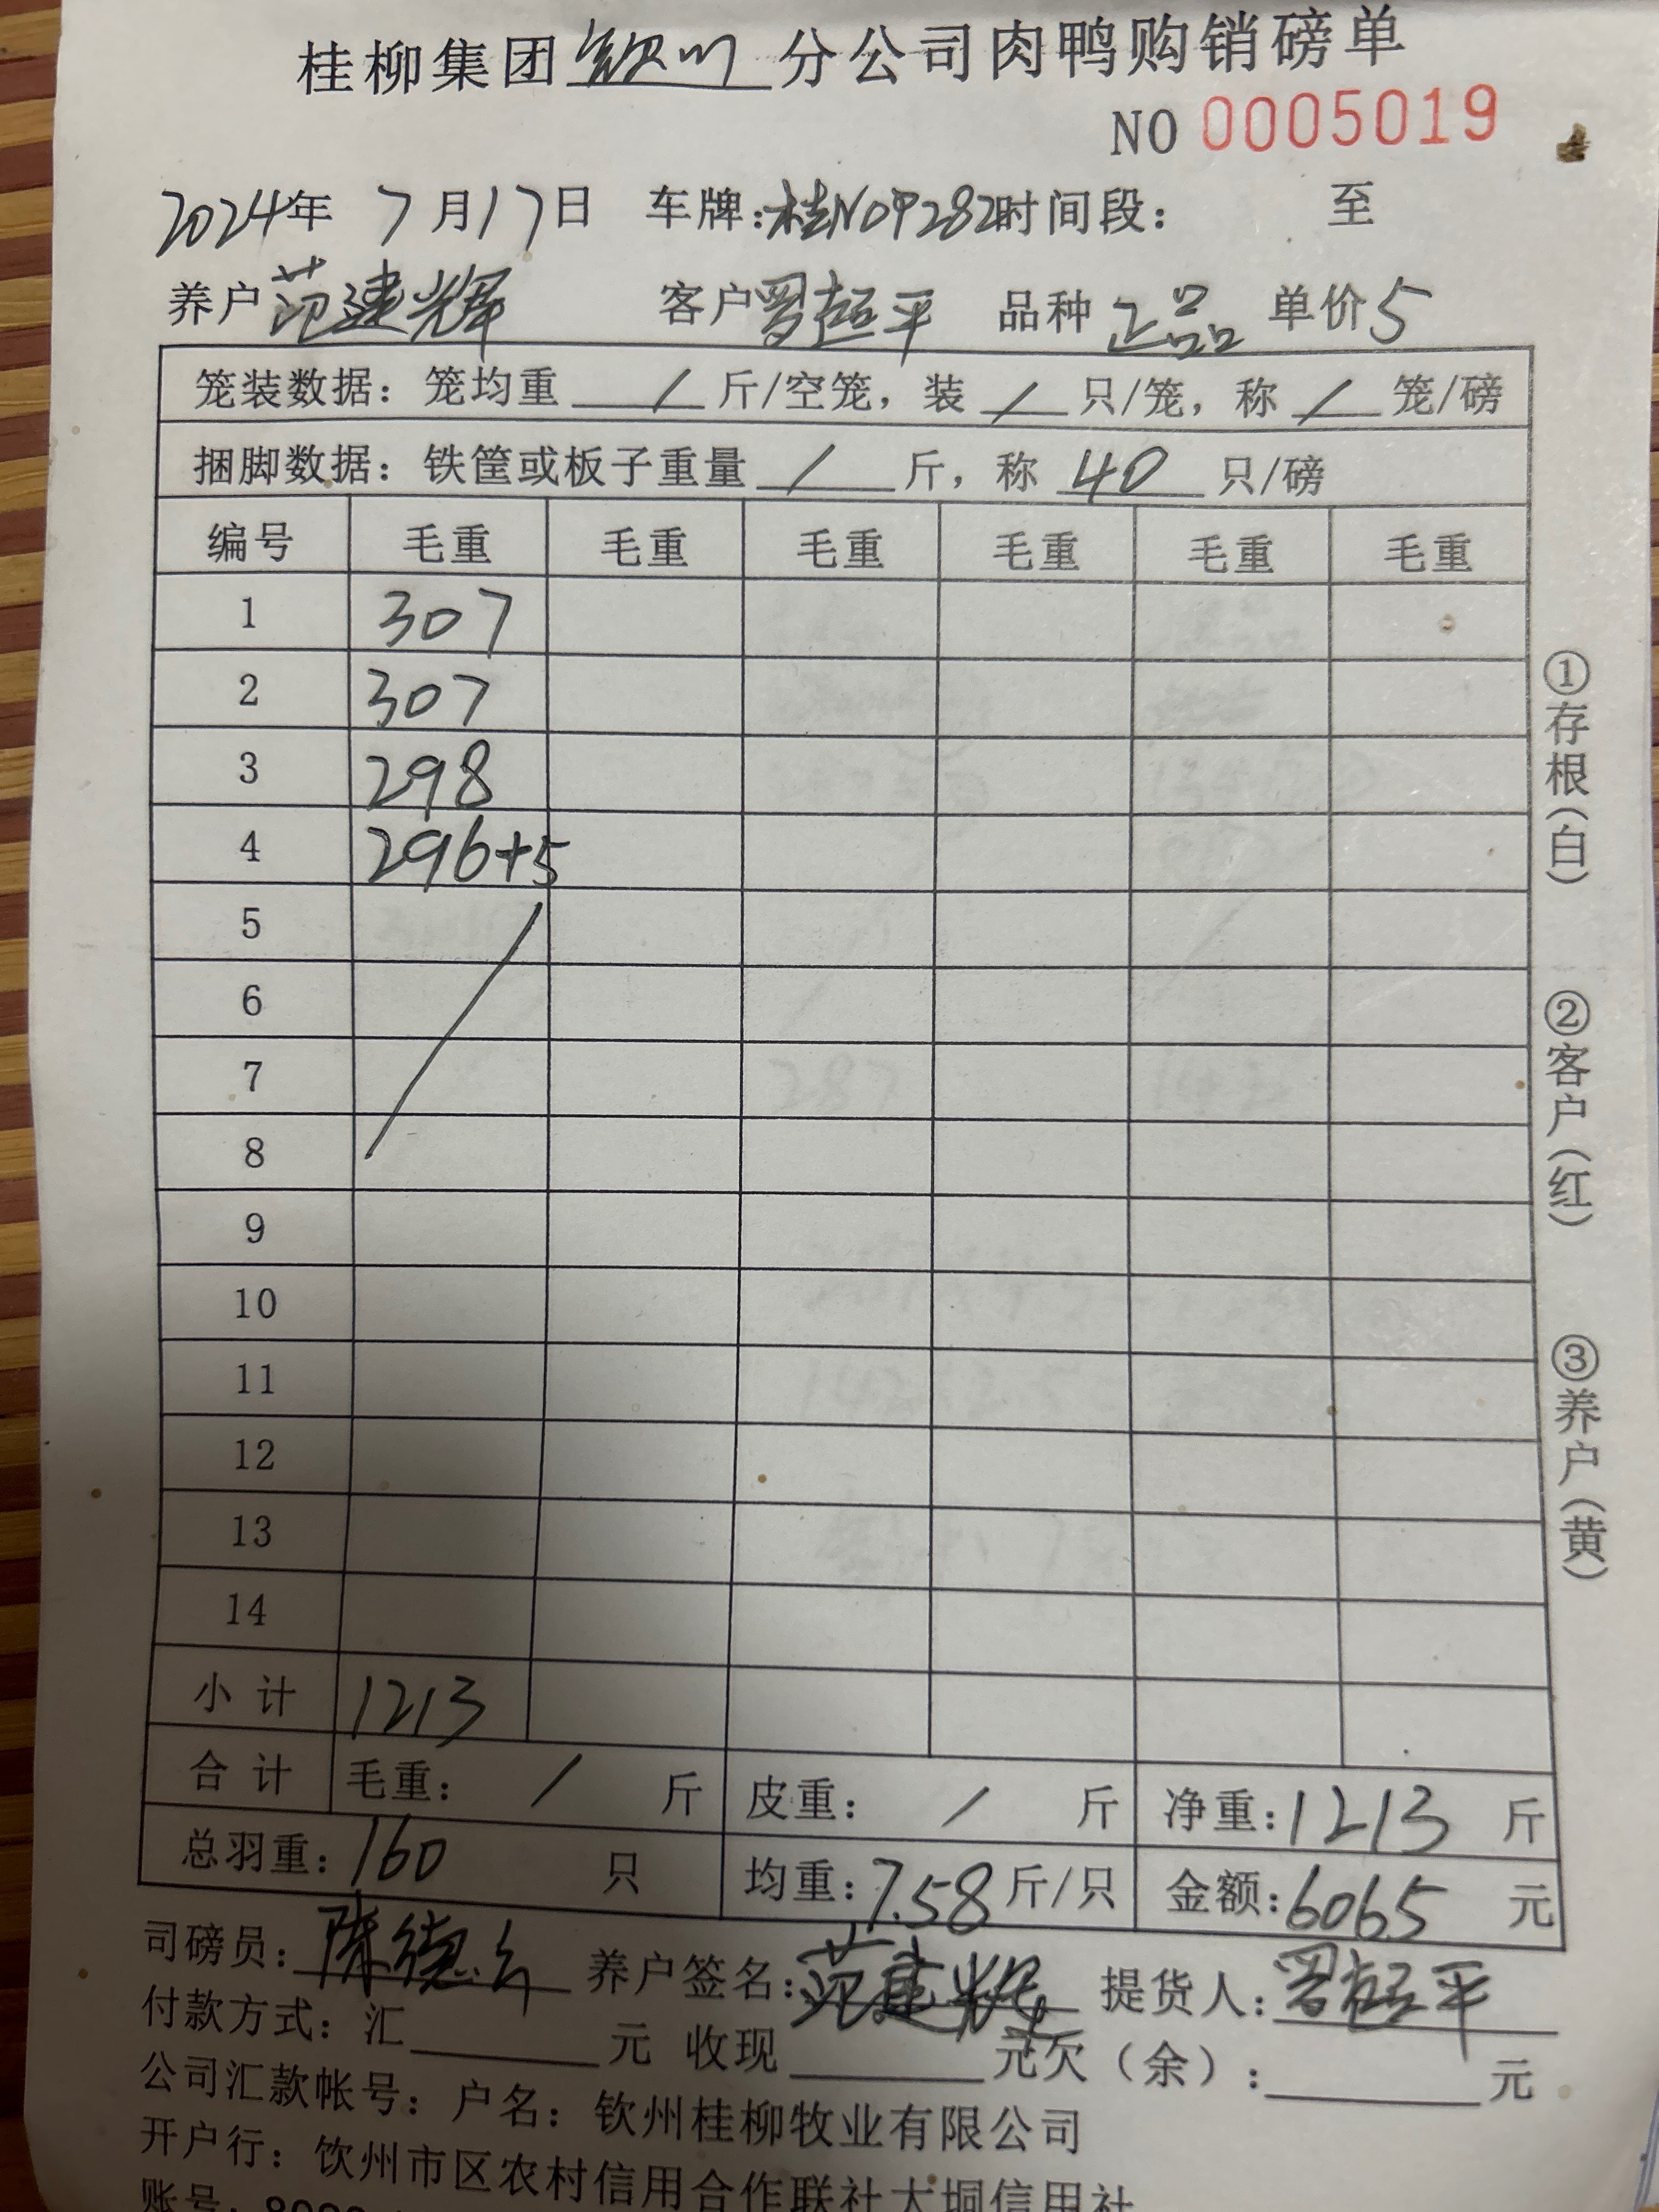 桂柳集团钦州分公司肉鸭购销磅单
NO 0005019
2024年 7月17日 车牌:桂N09282时间段: 至
养户范建辉 客户罗超平 品种正品 单价5
笼装数据: 笼均重 / 斤/空笼, 装 / 只/笼, 称 / 笼/磅
捆脚数据: 铁筐或板子重量 / 斤, 称 40 只/磅
编号 毛重 毛重 毛重 毛重 毛重 毛重
1 307
2 307
3 298
4 296+5
5
6
7
8
9
10
11
12
13
14
小计 1213
合计 毛重: / 斤 皮重: / 斤 净重:1213 斤
总羽重:160 只 均重:7.58斤/只 金额:6065 元
司磅员: 陈德 养户签名:范建辉 提货人:罗超平
付款方式: 汇 元 收现 元欠(余): 元
公司汇款帐号: 户名: 钦州桂柳牧业有限公司
开户行: 钦州市区农村信用合作联社大垌信用社
账号:
①存根(白)
②客户(红)
③养户(黄)